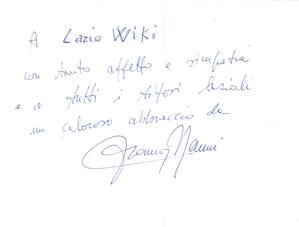 A Lazio Wiki
con tanto affetto e simpatia
e a tutti i tifosi laziali
un caloroso abbraccio da
Franco Nanni